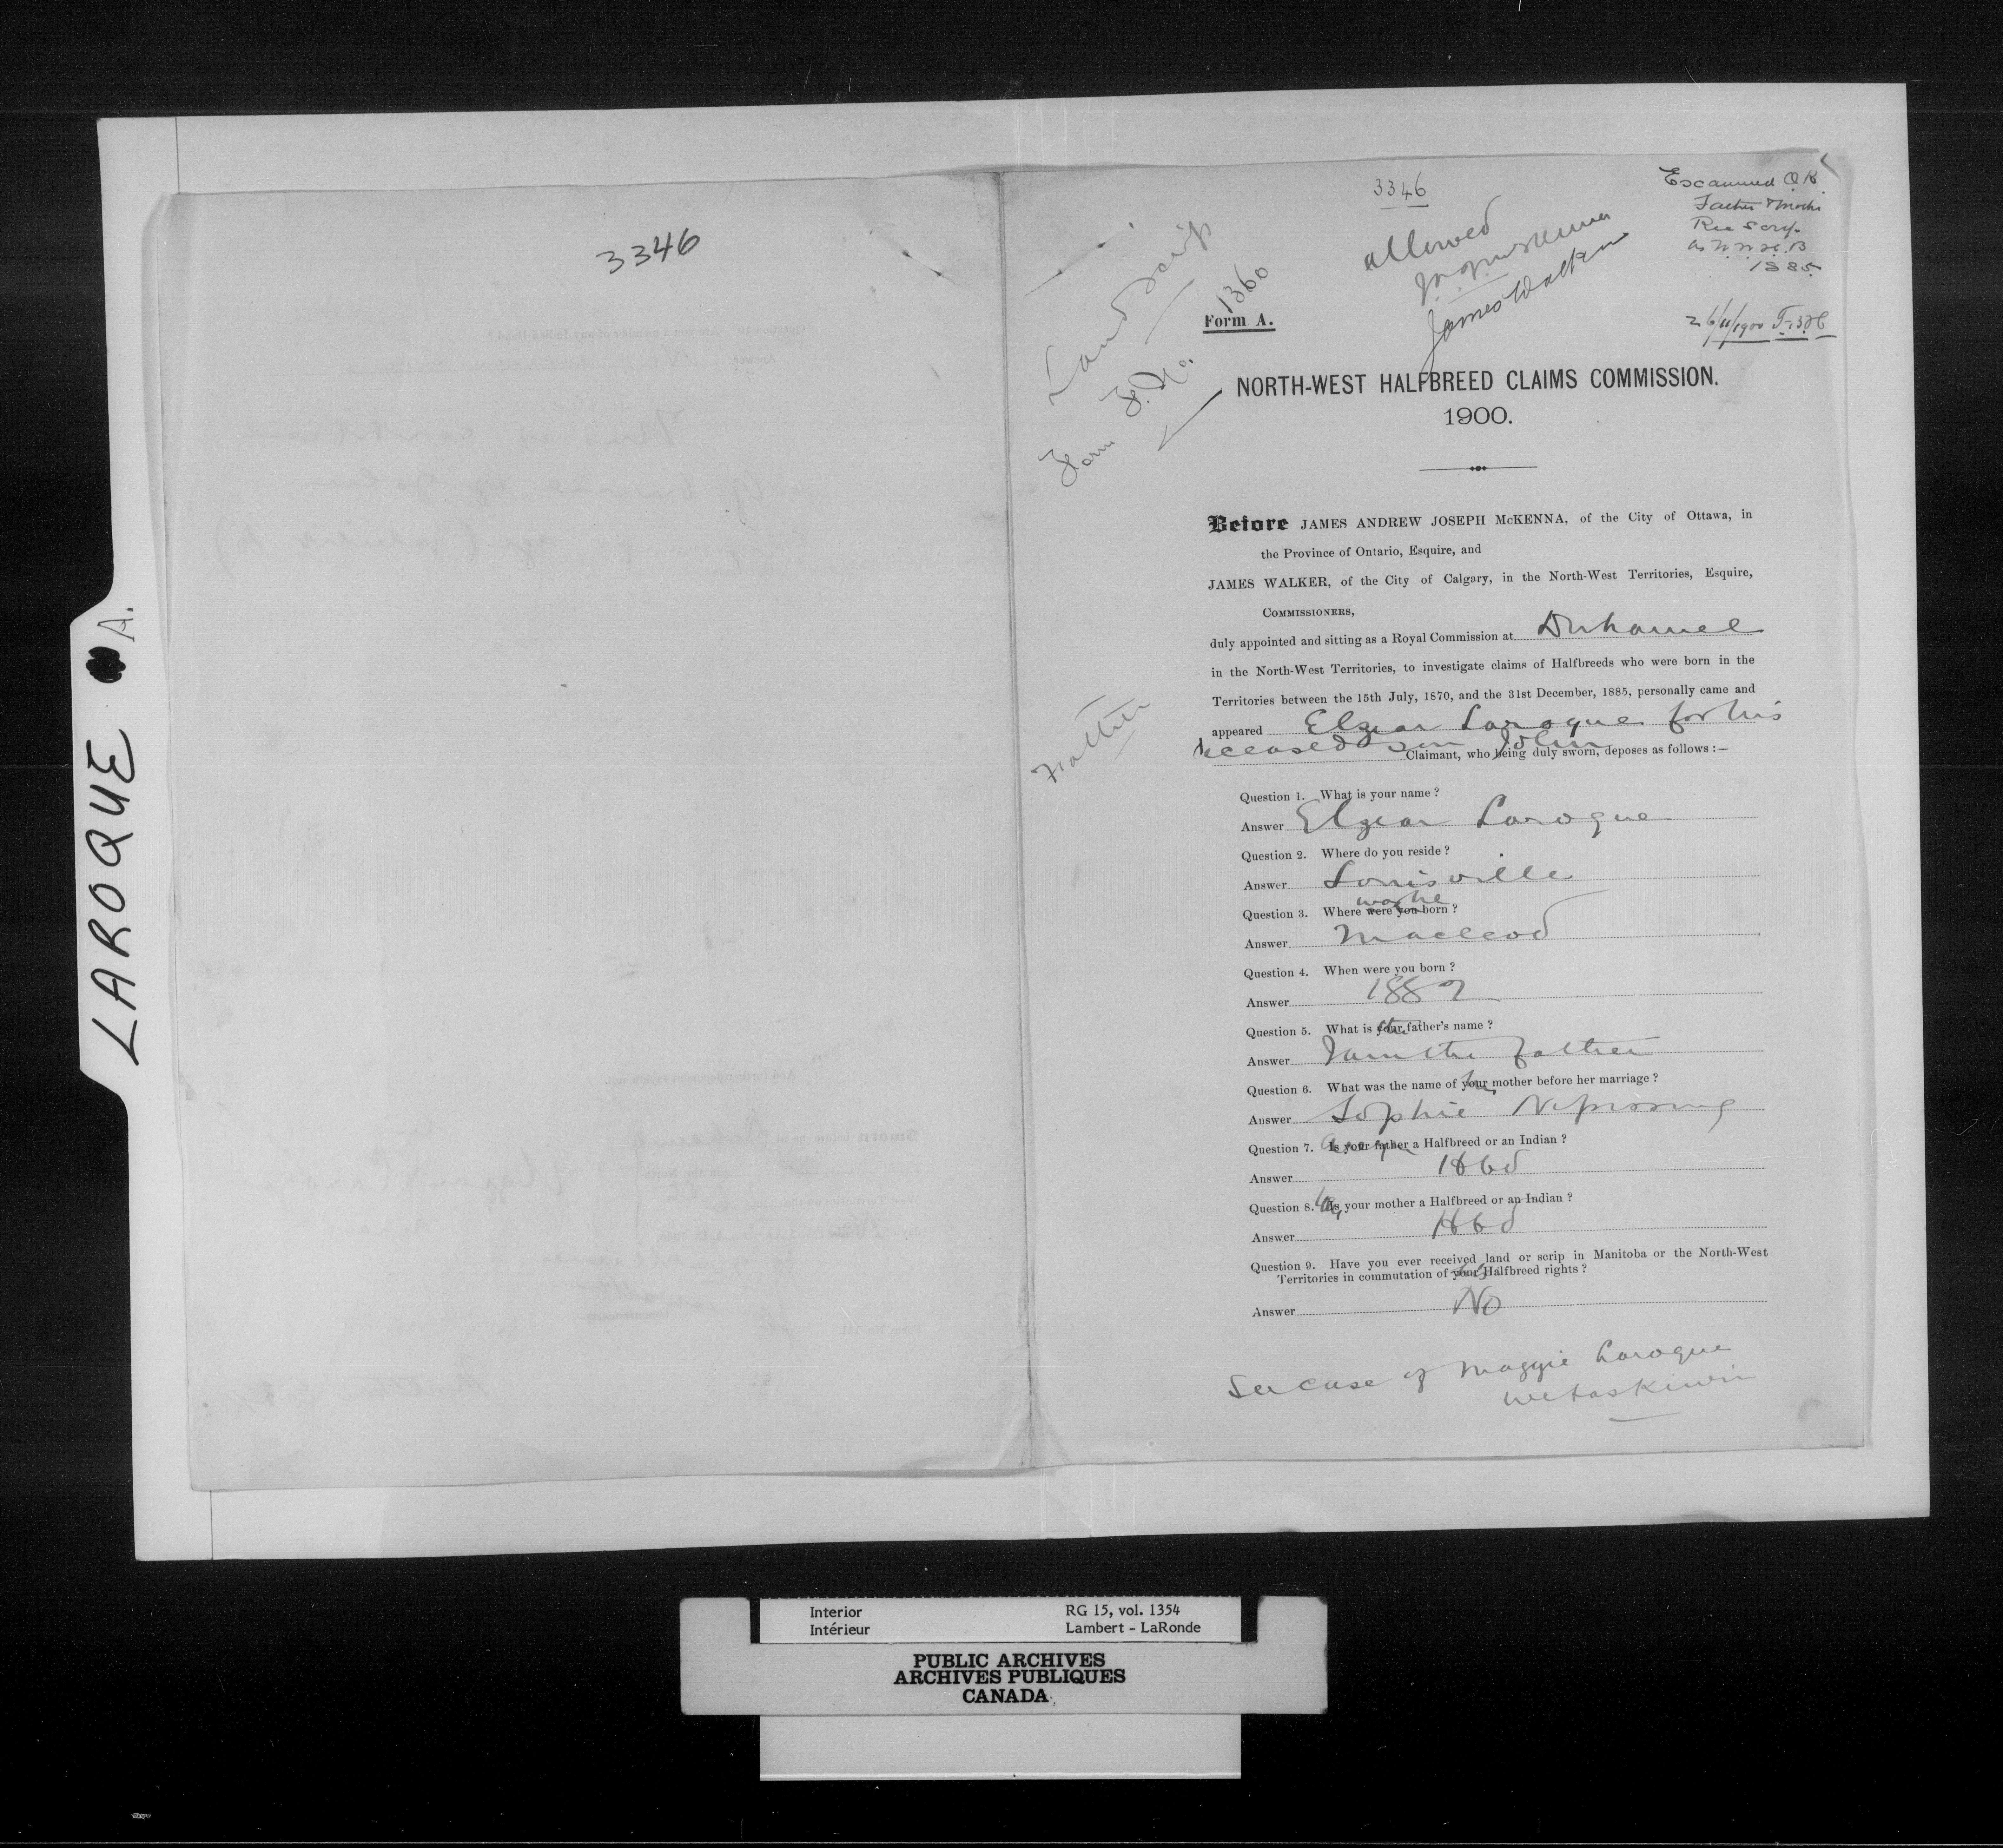 3346
LAROQUE A.
3346
allowed
James Walker
Examined O.K.
Father & Mother
Rec Scrip
as N.W.H.B
1885
26/11/1900
Land Scrip
Form F. No. 1360
Form A.
NORTH-WEST HALFBREED CLAIMS COMMISSION.
1900.
Before JAMES ANDREW JOSEPH McKENNA, of the City of Ottawa, in
the Province of Ontario, Esquire, and
JAMES WALKER, of the City of Calgary, in the North-West Territories, Esquire,
COMMISSIONERS,
duly appointed and sitting as a Royal Commission at Duhamel
in the North-West Territories, to investigate claims of Halfbreeds who were born in the
Territories between the 15th July, 1870, and the 31st December, 1885, personally came and
appeared Elzear Laroque for his
deceased son John
Claimant, who being duly sworn, deposes as follows :—
Father
Question 1. What is your name ?
Answer Elzear Laroque
Question 2. Where do you reside ?
Answer Louisville
was he
Question 3. Where were you born ?
Answer Macleod
Question 4. When were you born ?
Answer 1882
Question 5. What is your father's name ?
Answer I am the father
Question 6. What was the name of your mother before her marriage ?
Answer Sophie
Question 7. Is your father a Halfbreed or an Indian ?
Answer Hbd
Question 8. Is your mother a Halfbreed or an Indian ?
Answer Hbd
Question 9. Have you ever received land or scrip in Manitoba or the North-West
Territories in commutation of your Halfbreed rights ?
Answer No
See case of Maggie Laroque
Wetaskiwin
Interior
Intérieur
RG 15, vol. 1354
Lambert - LaRonde
PUBLIC ARCHIVES
ARCHIVES PUBLIQUES
CANADA